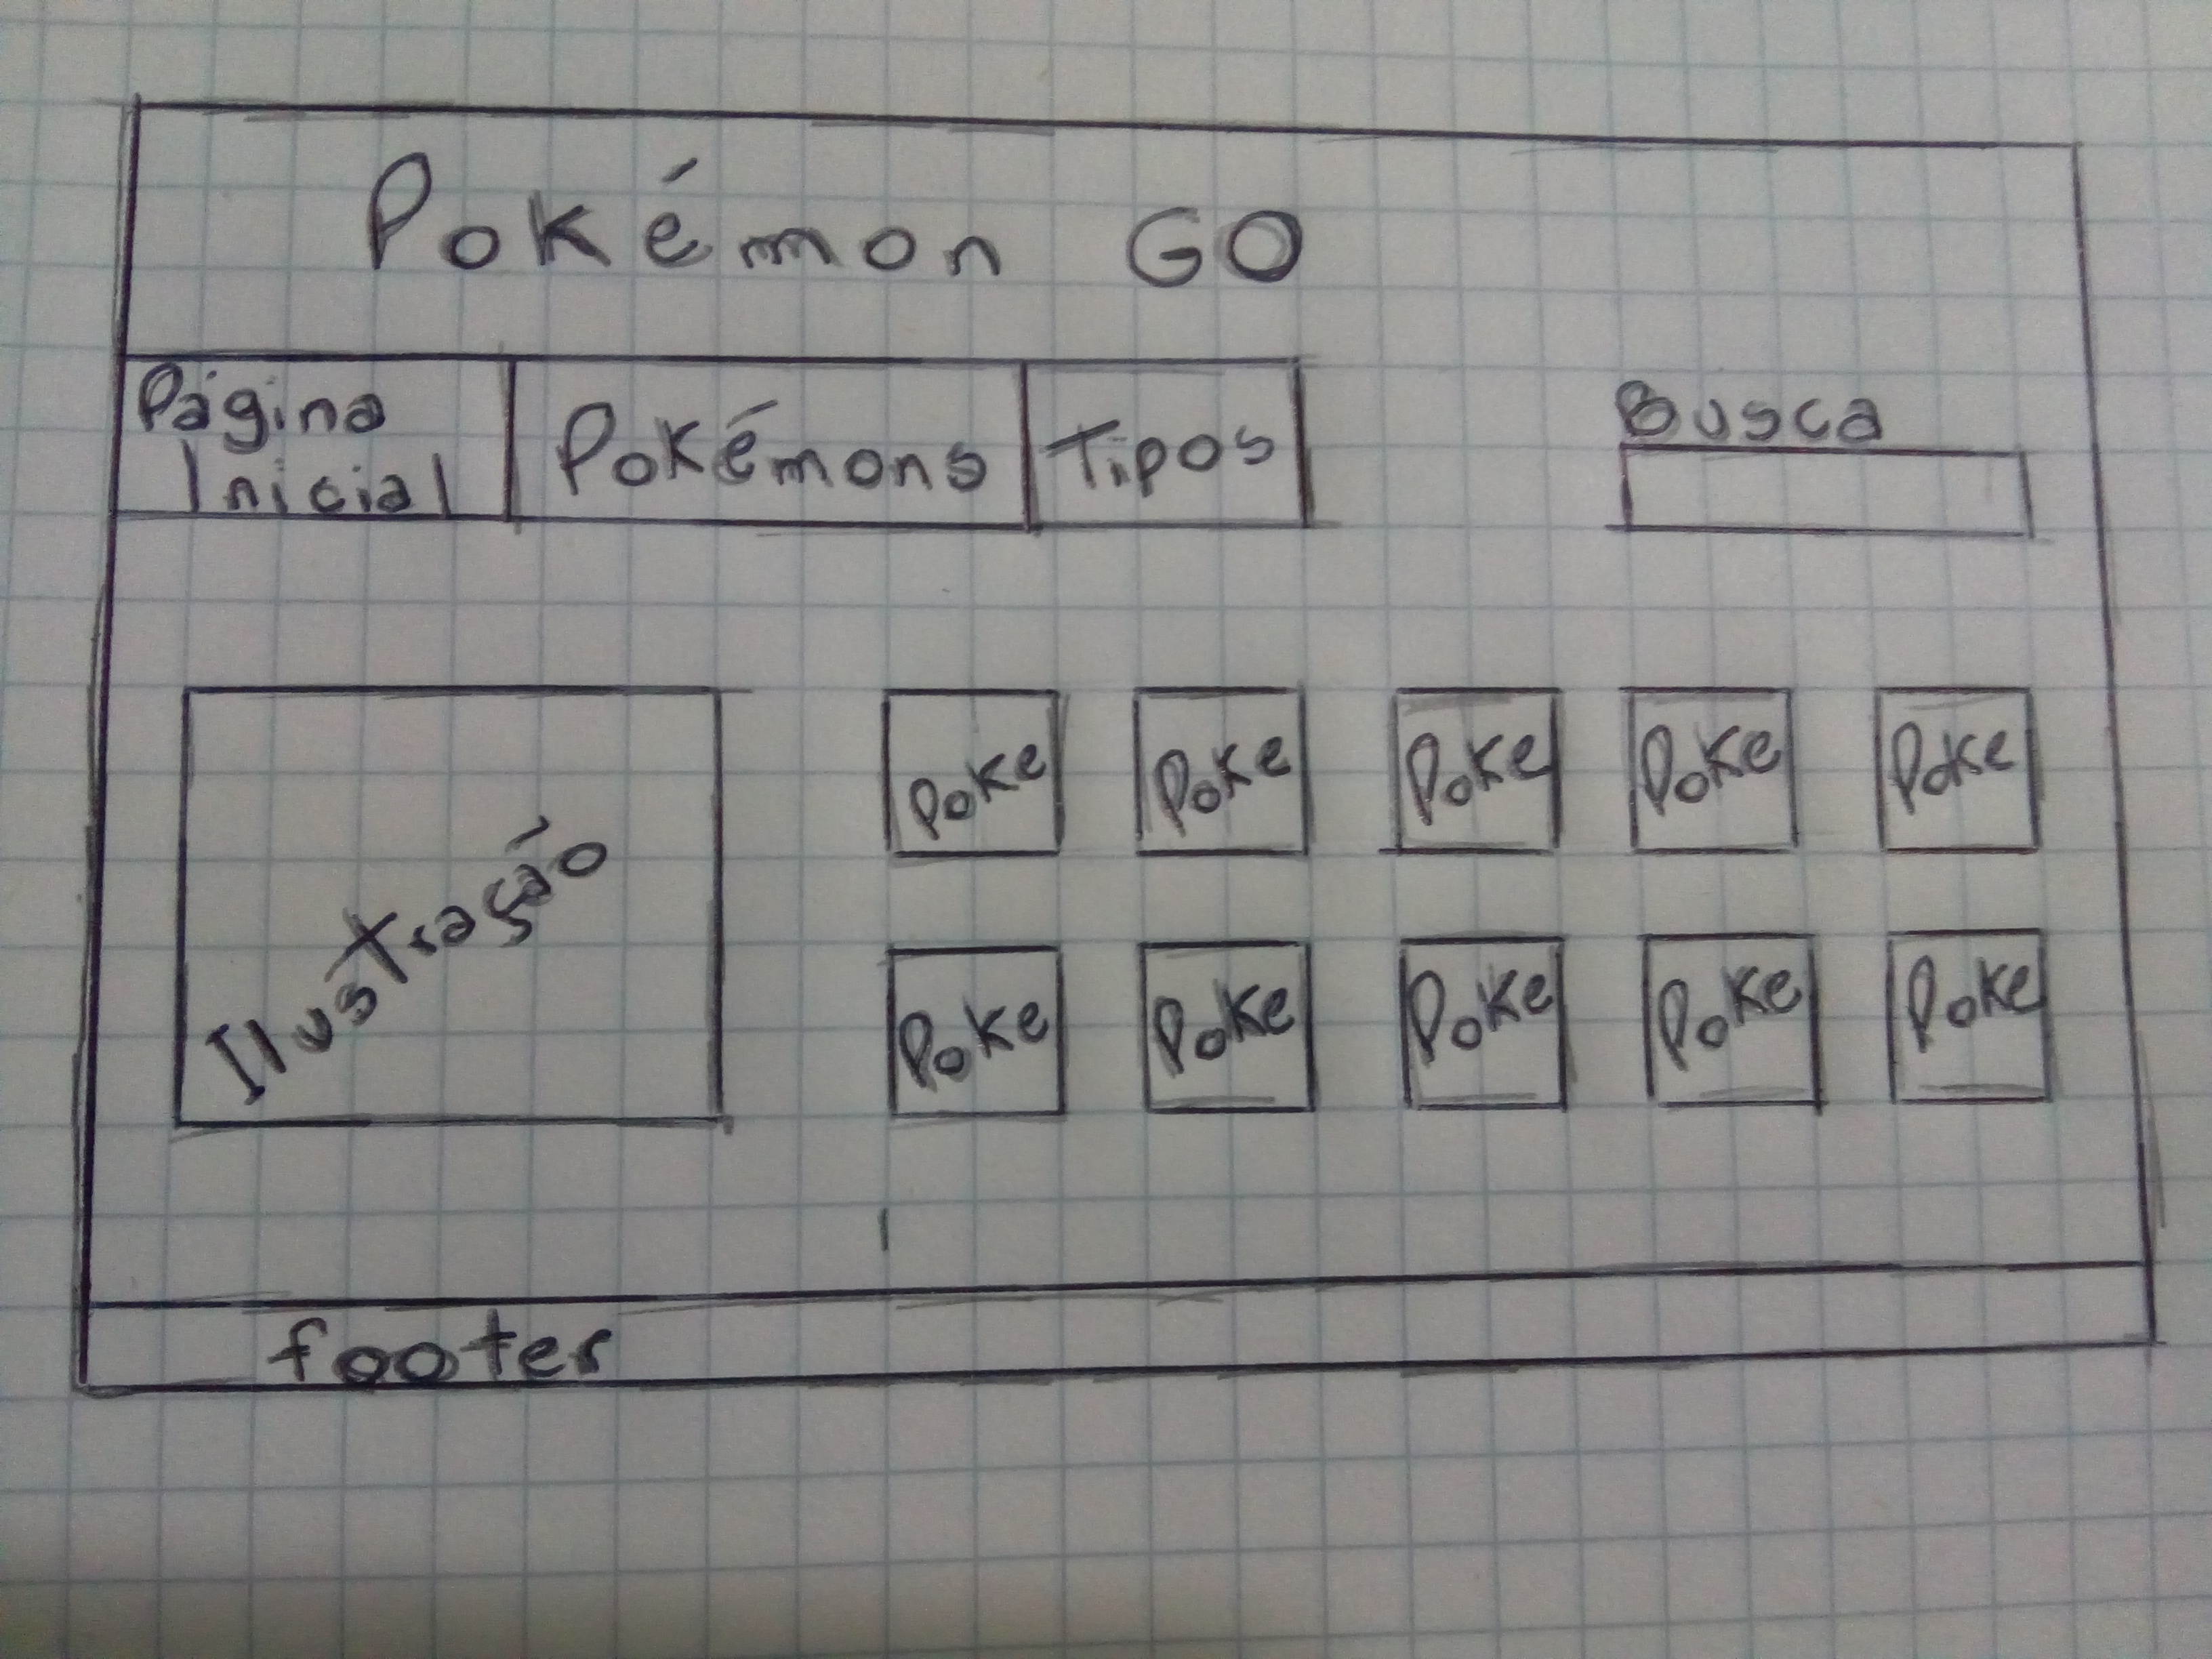 Pokémon GO
Página
Inicial
Pokémons
Tipos
Busca
Ilustração
Poke Poke Poke Poke Poke
Poke Poke Poke Poke Poke
footer